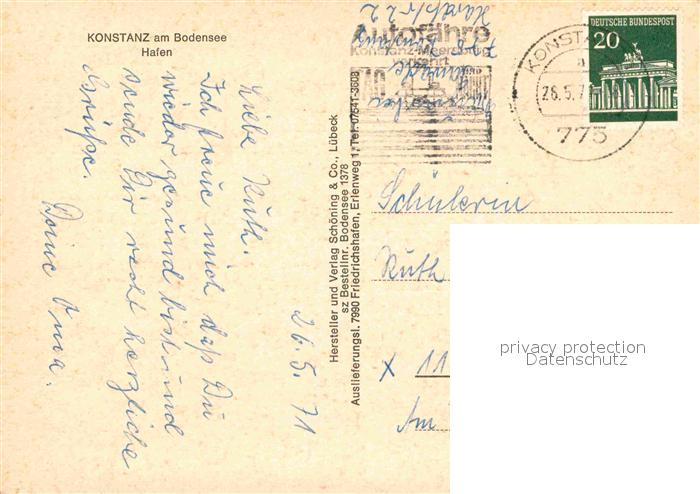 KONSTANZ am Bodensee
Hafen
26.5.71
Liebe Ruth.
Ich freue mich daß Du
wieder gesund bist und
sende Dir recht herzliche
Grüße.
Deine Oma.
Hersteller und Verlag Schöning & Co., Lübeck
sz Bestellnr. Bodensee 1378
Auslieferungsl. 7990 Friedrichshafen, Erlenweg 1, Tel. 07541-3608
Autofähre
Konstanz-Meersburg
KONSTA
26.5.7
775
DEUTSCHE BUNDESPOST
20
Schülerin
Ruth
x 11
Am
privacy protection
Datenschutz